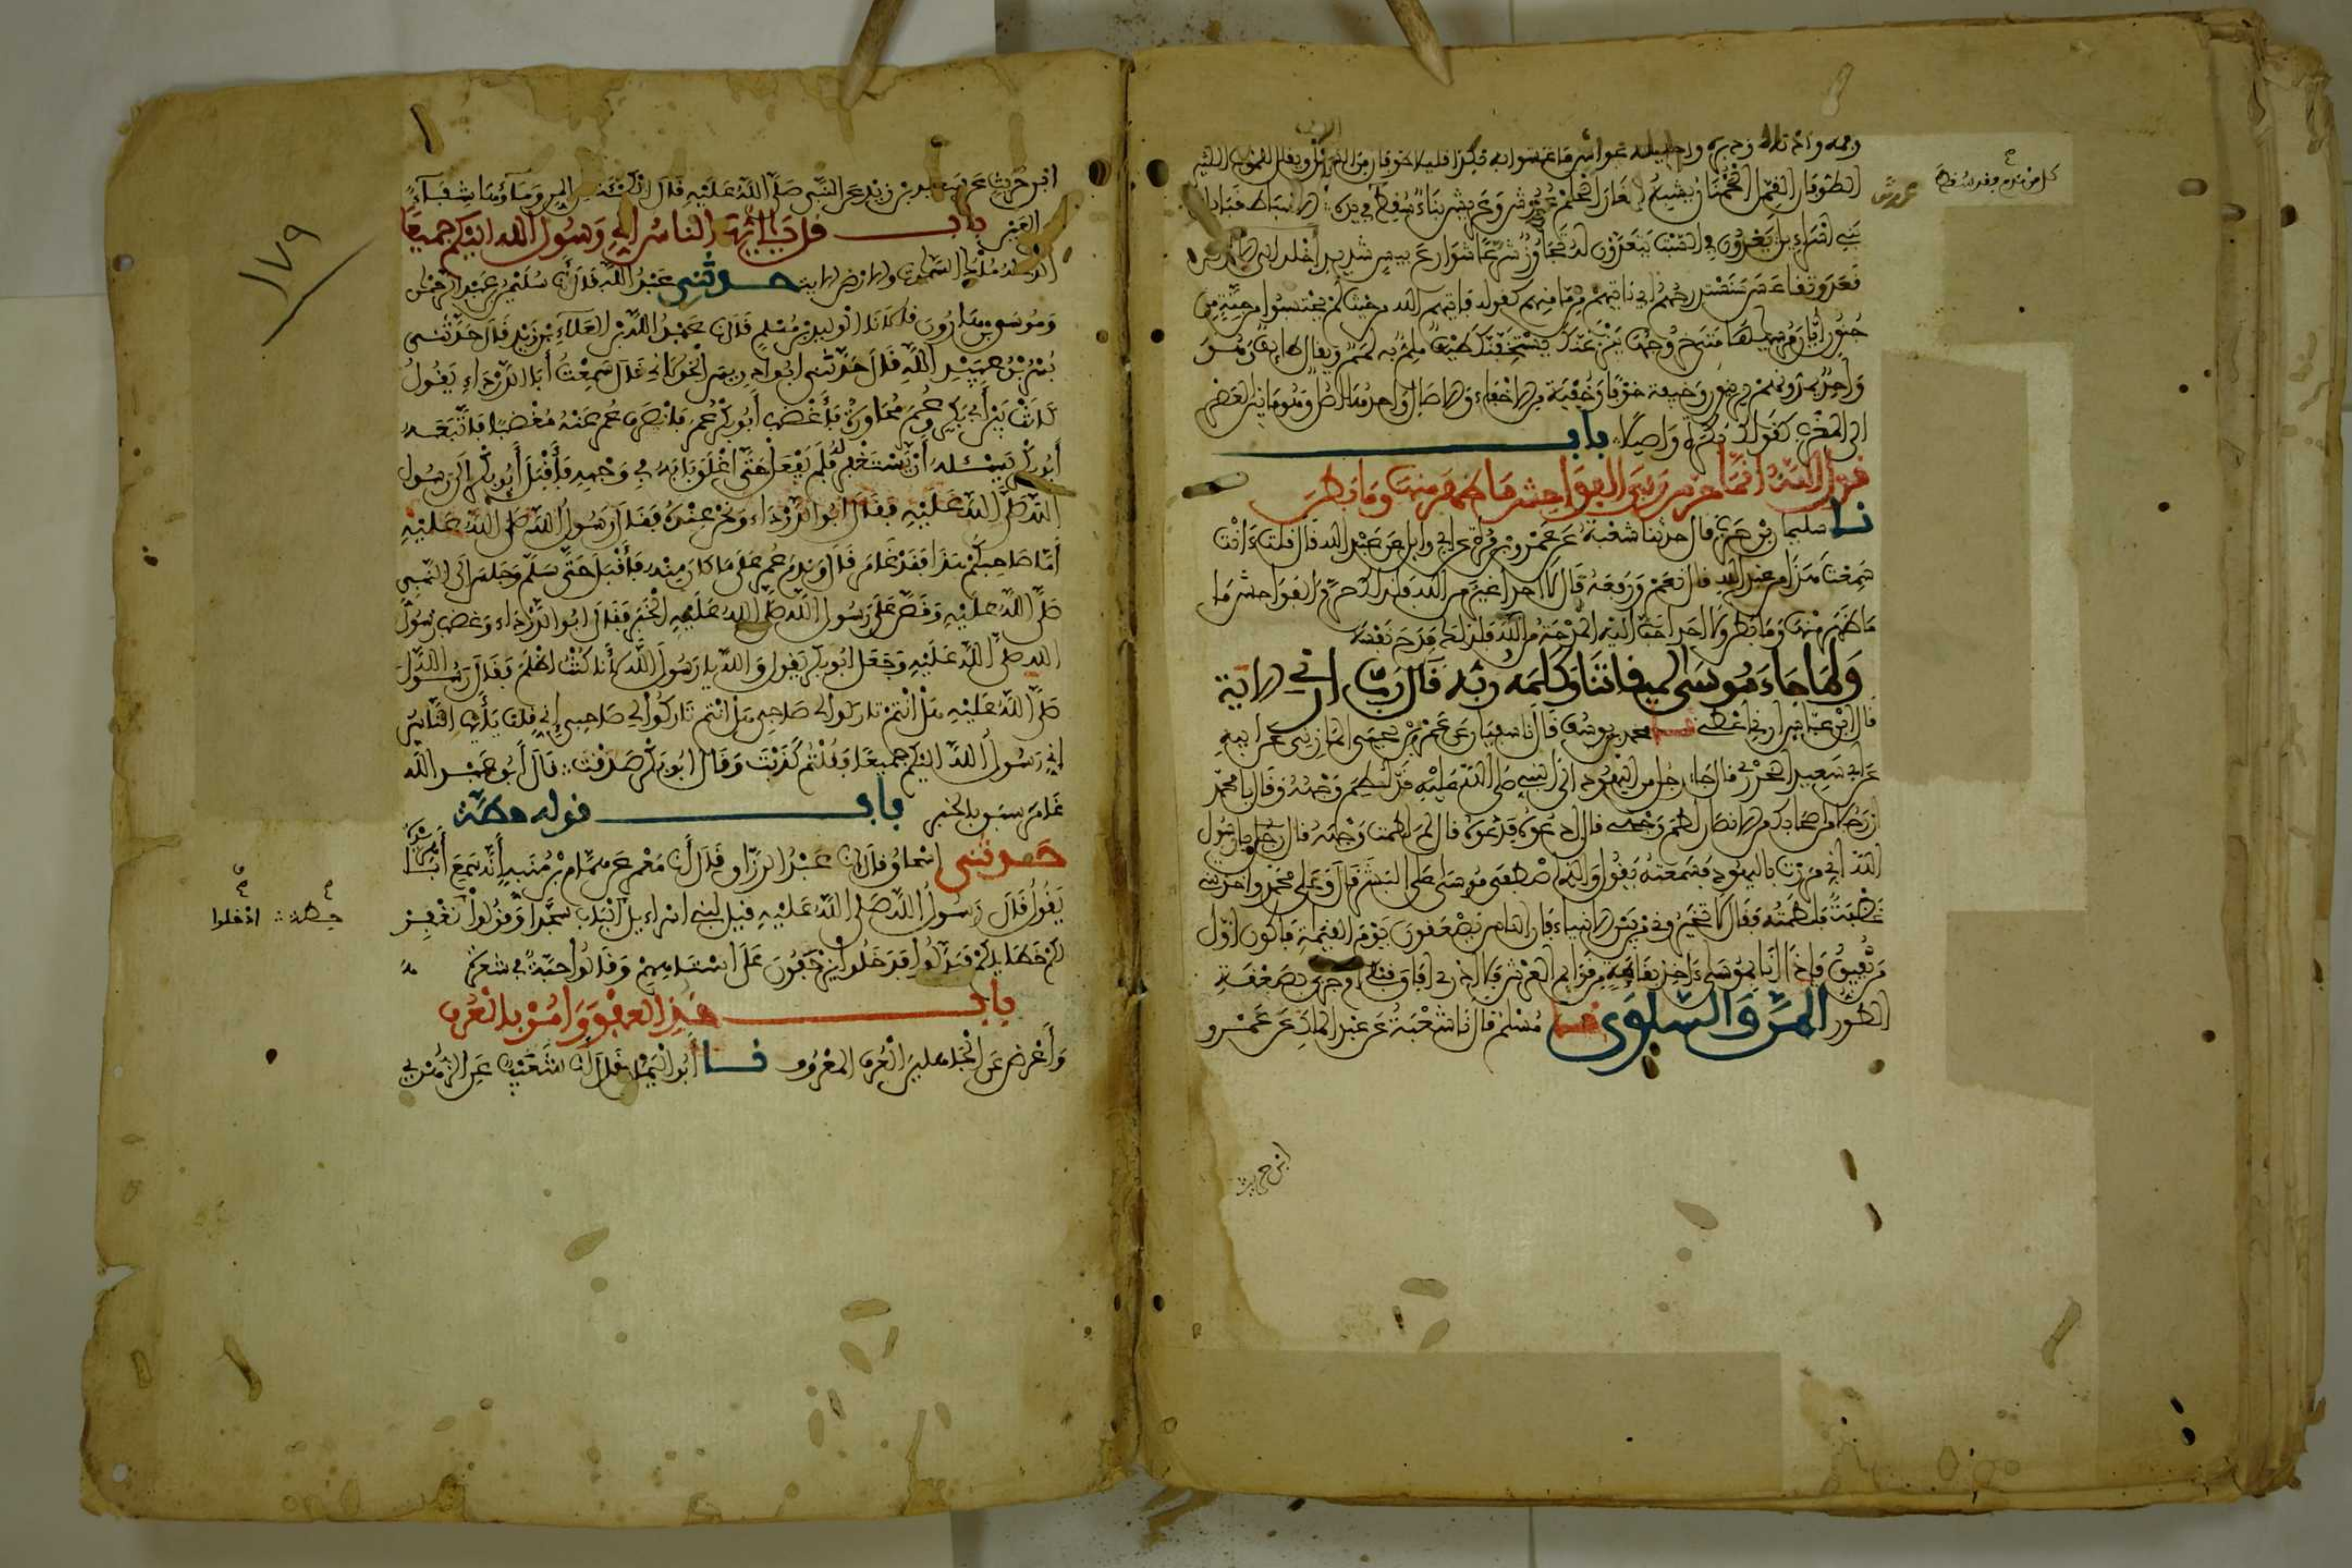 الطوفان القمل الحمنان يشبه صغار الحلم عروش وعريش بناء سقط في يده الاسباط قبايل
بني اسراءيل يعدون في السبت يتعدون له تجاوز شرعا شوارع بييس شديد اخلد الى الارض
قعد وتقاعس سنستدرجهم اي ناتيهم من مامنهم كقوله فاتيهم الله من حيث لم يحتسبوا من جنة من
جنون ايان مرسيها متى خروجها ينزغنك يستخفنك طيف ملم به لمم ويقال طايف وهو
واحد يمدونهم يزينون وخيفة خوفا وخفية من الاخفاء والاصال واحدها اصيل وهو ما بين العصر
الى المغرب كقوله بكرة واصيلا باب
قول الله انما حرم ربي الفواحش ما ظهر منها وما بطن
نا سليمان بن حرب قال حدثنا شعبة عن عمرو بن مرة عن ابي وايل عن عبد الله قال قلت ءانت
سمعت هذا من عبد الله قال نعم ورفعه قال لا احد اغير من الله فلذلك حرم الفواحش ما
ما ظهر منها وما بطن ولا احد احب اليه المدحة من الله فلذلك مدح نفسه
ولما جاء موسى لميقاتنا وكلمه ربه قال رب ارني الاية
قال ابن عباس ارني اعطني نا محمد بن يوسف قال نا سفيان عن عمرو بن يحيى المازني عن ابيه
عن ابي سعيد الخدري قال جاء رجل من اليهود الى النبي صلى الله عليه قد لطم وجهه وقال يا محمد
ان رجلا من اصحابك من الانصار لطم وجهي قال ادعوه فدعوه قال لم لطمت وجهه قال يا رسول
الله اني مررت باليهود فسمعته يقول والذي اصطفى موسى على البشر قال وعلى محمد واخذتني
غضبة فلطمته فقال لا تخيروني من بين الانبياء فان الناس يصعقون يوم القيمة فاكون اول
من يفيق فاذا انا بموسى ءاخذ بقايمة من قوايم العرش فلا ادري افاق قبلي ام جزي بصعقة
الطور المن والسلوى نا مسلم قال نا شعبة عن عبد الملك عن عمرو
ابن حريث
١٧٩
ابن حريث عن سعيد بن زيد عن النبي صلى الله عليه قال الكمأة من المن وماؤها شفاء
العين باب قل يا ايها الناس اني رسول الله اليكم جميعا
الذي له ملك السموت والارض الاية حدثني عبد الله قال نا سليمن بن عبد الرحمن
وموسى بن هارون قالا نا الوليد بن مسلم قال نا عبد الله بن العلاء بن زبر قال حدثني
بسر بن عبيد الله قال حدثني ابو ادريس الخولاني قال سمعت ابا الدرداء يقول
كانت بين ابي بكر وعمر محاورة فاغضب ابو بكر عمر فانصرف عمر عنه مغضبا فاتبعه
ابو بكر يسئله ان يستغفر له فلم يفعل حتى اغلق بابه في وجهه فاقبل ابو بكر الى رسول
الله صلى الله عليه فقال ابو الدرداء ونحن عنده فقال رسول الله صلى الله عليه
اما صاحبكم هذا فقد غامر قال وندم عمر على ما كان منه فاقبل حتى سلم وجلس الى النبي
صلى الله عليه وقص على رسول الله صلى الله عليه الخبر فقال ابو الدرداء وغضب رسول
الله صلى الله عليه وجعل ابو بكر يقول والله يا رسول الله لانا كنت اظلم فقال رسول الله
صلى الله عليه هل انتم تاركوا لي صاحبي هل انتم تاركوا لي صاحبي اني قلت يا ايها الناس
اني رسول الله اليكم جميعا فقلتم كذبت وقال ابو بكر صدقت قال ابو عبد الله
غامر سبق بالخير باب قوله حطة
حدثني اسحاق قال نا عبد الرزاق قال انا معمر عن همام بن منبه انه سمع ابا هريرة
يقول قال رسول الله صلى الله عليه قيل لبني اسراءيل الباب سجدا وقولوا نغفر
لكم خطاياكم فبدلوا فدخلوا يزحفون على استاههم وقالوا حبة في شعرة
حطة ادخلوا
باب خذ العفو وامر بالعرف
واعرض عن الجاهلين العرف المعروف نا ابو اليمان قال انا شعيب عن الزهري